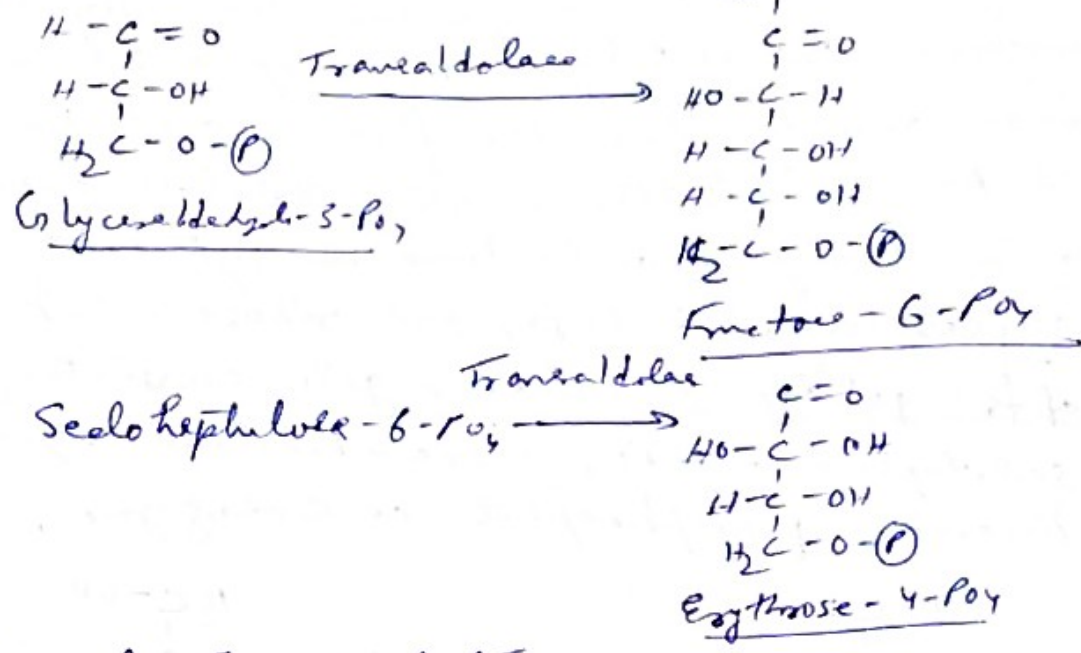 H - C = O
H - C - OH
H2C - O - (P)
Glyceraldehyde-3-PO4
Transaldolase
C = O
HO - C - H
H - C - OH
H - C - OH
H2 - C - O - (P)
Fructose - 6 - PO4
Sedoheptulose - 6 - PO4
Transaldolase
C = O
HO - C - OH
H - C - OH
H2C - O - (P)
Erythrose - 4 - PO4